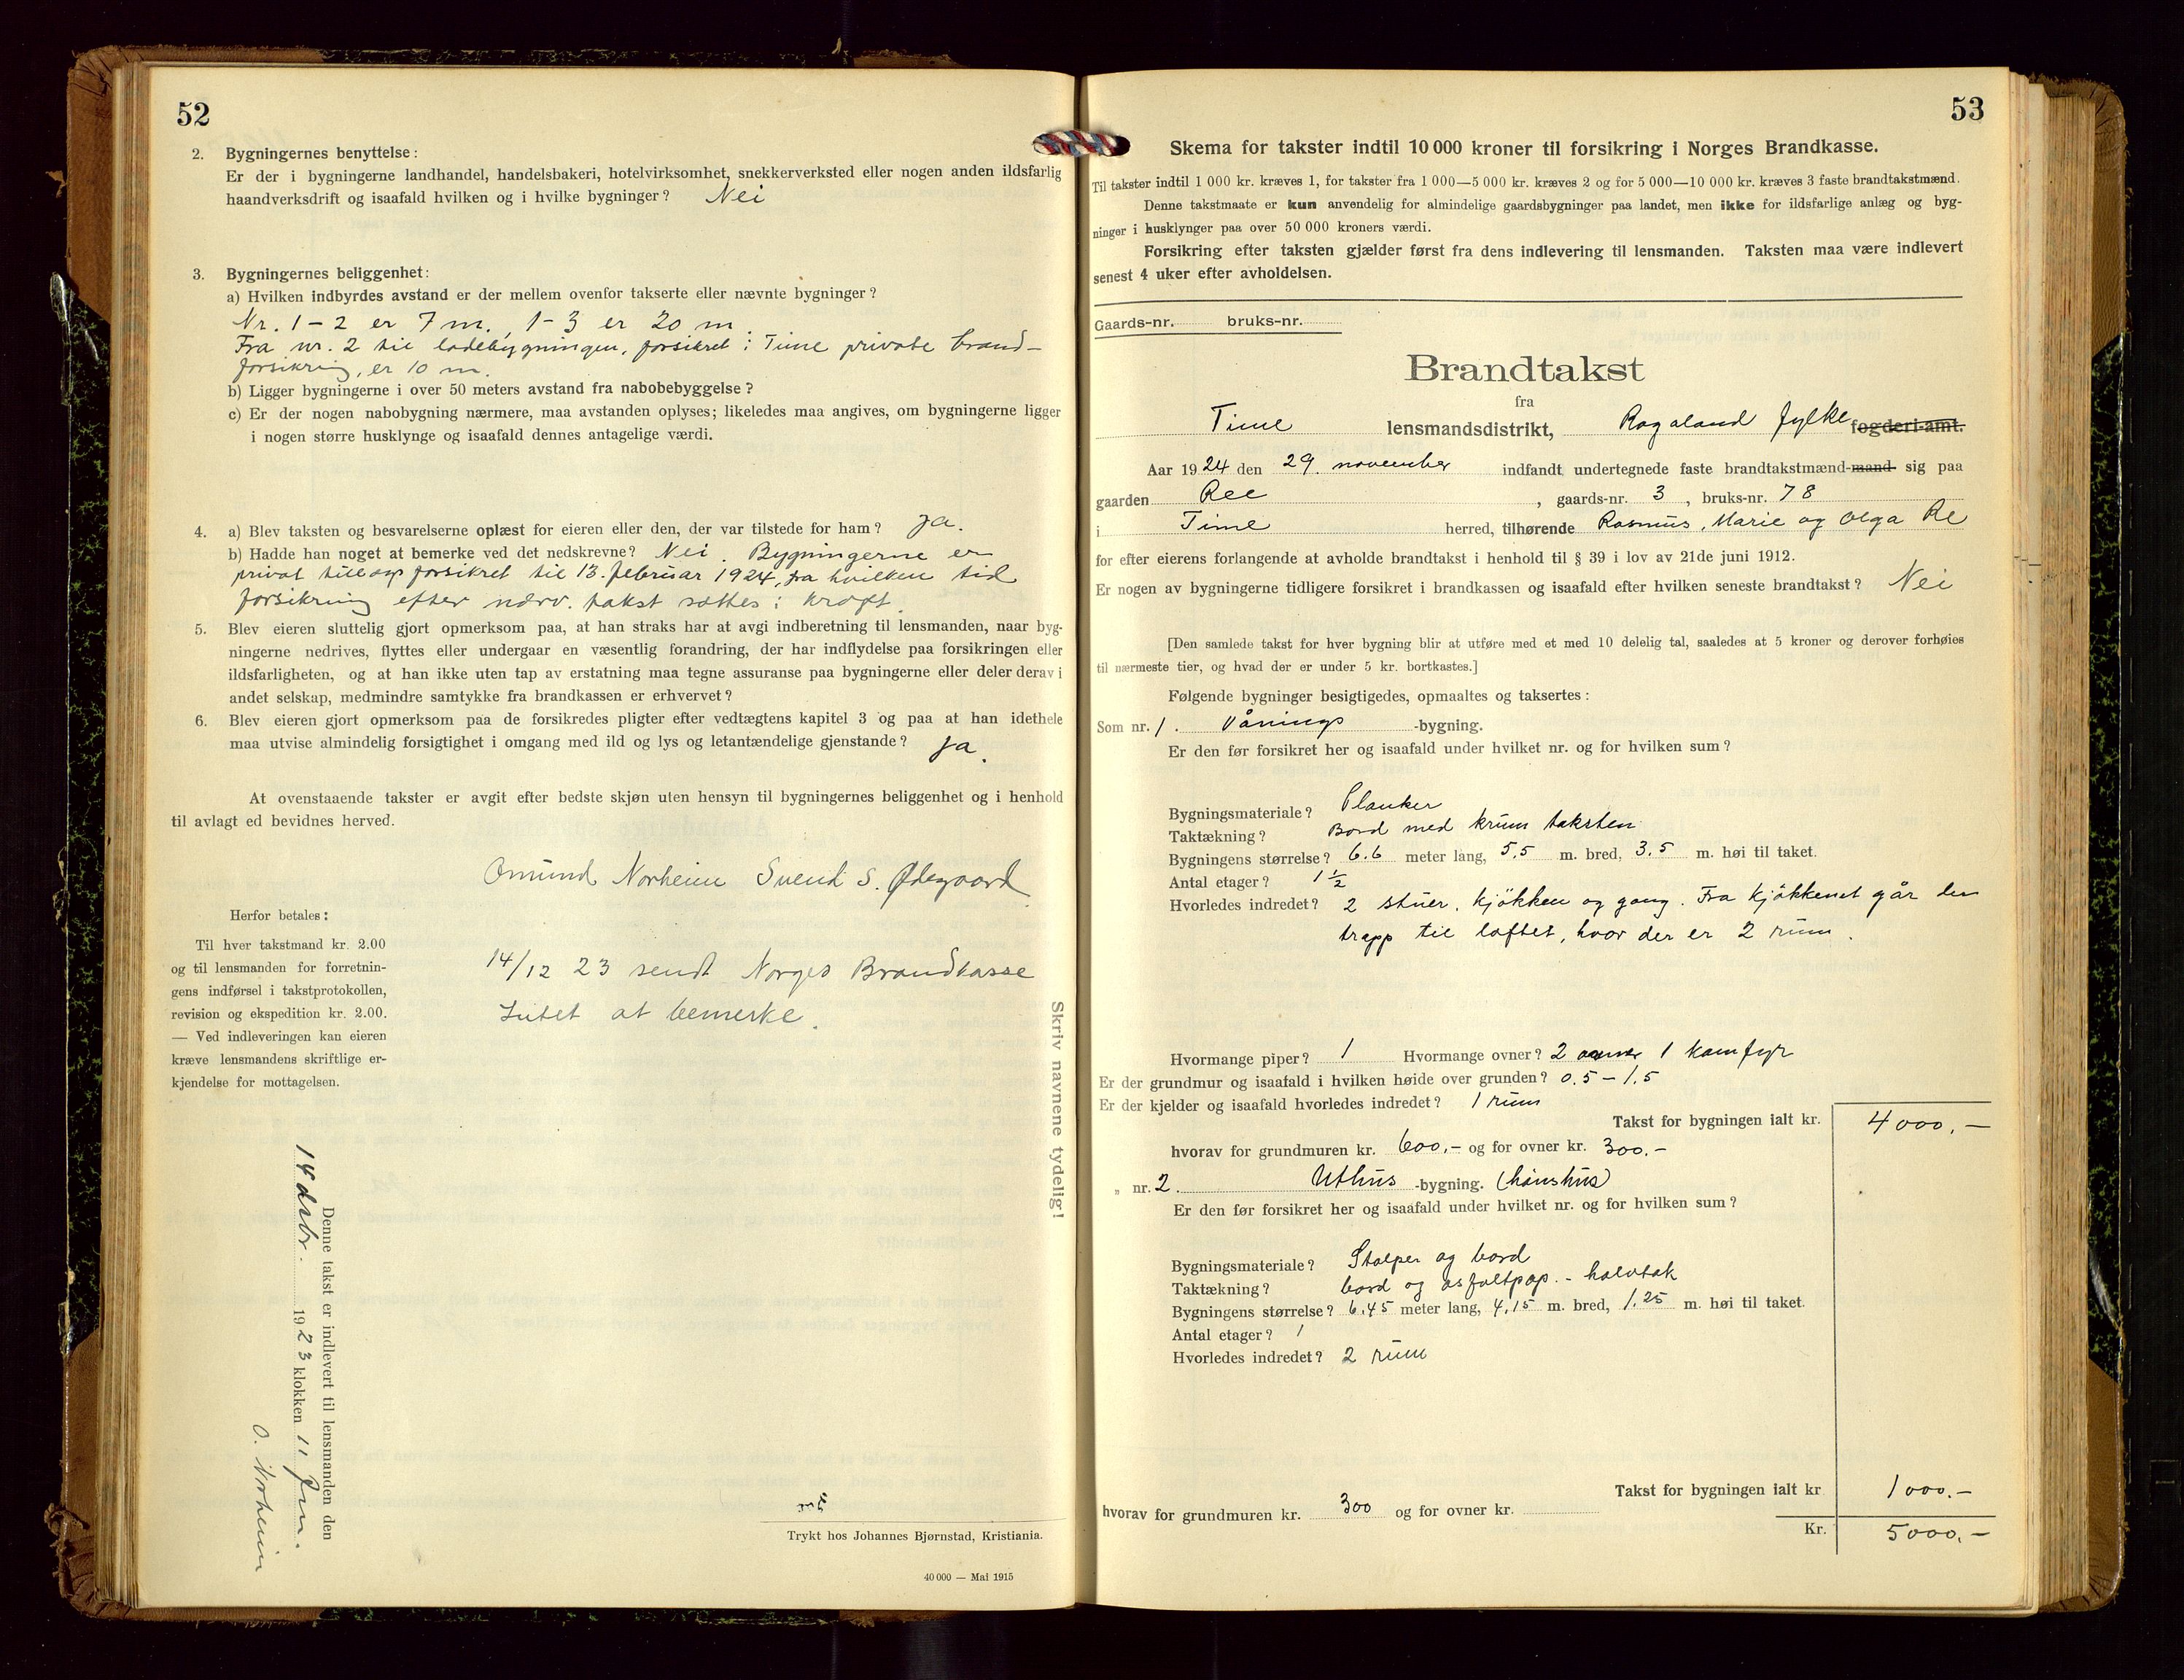 52
2. Bygningernes benyttelse:
Er der i bygningerne landhandel, handelsbakeri, hotelvirksomhet, snekkerverksted eller nogen anden ildsfarlig
haandverksdrift og isaafald hvilken og i hvilke bygninger? Nei
3. Bygningernes beliggenhet:
a) Hvilken indbyrdes avstand er der mellem ovenfor takserte eller nævnte bygninger?
Nr. 1-2 er 7 m., 1-3 er 20 m.
Fra nr. 2 til ladebygningen, forsikret i Time private brand-
forsikring, er 10 m.
b) Ligger bygningerne i over 50 meters avstand fra nabobebyggelse?
c) Er der nogen nabobygning nærmere, maa avstanden oplyses; likeledes maa angives, om bygningerne ligger
i nogen større husklynge og isaafald dennes antagelige værdi.
4. a) Blev taksten og besvarelserne oplæst for eieren eller den, der var tilstede for ham? Ja.
b) Hadde han noget at bemerke ved det nedskrevne? Nei. Bygningerne er
privat forsikret til 13. februar 1924, fra hvilken tid
forsikring efter nærv. takst sættes i kraft.
5. Blev eieren sluttelig gjort opmerksom paa, at han straks har at avgi indberetning til lensmanden, naar byg-
ningerne nedrives, flyttes eller undergaar en væsentlig forandring, der har indflydelse paa forsikringen eller
ildsfarligheten, og at han ikke uten tap av erstatning maa tegne assuranse paa bygningerne eller deler derav i
andet selskap, medmindre samtykke fra brandkassen er erhvervet?
6. Blev eieren gjort opmerksom paa de forsikredes pligter efter vedtægtens kapitel 3 og paa at han idethele
maa utvise almindelig forsigtighet i omgang med ild og lys og letantændelige gjenstande? Ja.
At ovenstaaende takster er avgit efter bedste skjøn uten hensyn til bygningernes beliggenhet og i henhold
til avlagt ed bevidnes herved.
Omund Norheim Svend S. Ødegaard
Herfor betales:
Til hver takstmand kr. 2.00
og til lensmanden for forretnin-
gens indførsel i takstprotokollen,
revision og ekspedition kr. 2.00.
— Ved indleveringen kan eieren
kræve lensmandens skriftlige er-
kjendelse for mottagelsen.
14/12 23 sendt Norges Brandkasse
Intet at bemerke.
Skriv navnene tydelig!
Denne takst er indlevert til lensmanden den
14 dsbr. 1923 klokken 11 fm.
O. Norheim
Trykt hos Johannes Bjørnstad, Kristiania.
40 000 — Mai 1915
53
Skema for takster indtil 10 000 kroner til forsikring i Norges Brandkasse.
Til takster indtil 1 000 kr. kræves 1, for takster fra 1 000—5 000 kr. kræves 2 og for 5 000—10 000 kr. kræves 3 faste brandtakstmænd.
Denne takstmaate er kun anvendelig for almindelige gaardsbygninger paa landet, men ikke for ildsfarlige anlæg og byg-
ninger i husklynger paa over 50 000 kroners værdi.
Forsikring efter taksten gjælder først fra dens indlevering til lensmanden. Taksten maa være indlevert
senest 4 uker efter avholdelsen.
Gaards-nr. bruks-nr.
Brandtakst
fra
Time lensmandsdistrikt, Rogaland fylke fogderi-amt.
Aar 1924 den 29. november indfandt undertegnede faste brandtakstmænd-mand sig paa
gaarden Ree, gaards-nr. 3, bruks-nr. 78
i Time herred, tilhørende Rasmus, Marie og Olga Re
for efter eierens forlangende at avholde brandtakst i henhold til § 39 i lov av 21de juni 1912.
Er nogen av bygningerne tidligere forsikret i brandkassen og isaafald efter hvilken seneste brandtakst? Nei
[Den samlede takst for hver bygning blir at utføre med et med 10 delelig tal, saaledes at 5 kroner og derover forhøies
til nærmeste tier, og hvad der er under 5 kr. bortkastes.]
Følgende bygninger besigtigedes, opmaaltes og taksertes:
Som nr. 1. Vånings -bygning.
Er den før forsikret her og isaafald under hvilket nr. og for hvilken sum?
Bygningsmateriale? Planker
Taktækning? Bord med krum taksten
Bygningens størrelse? 6.6 meter lang, 5,5 m. bred, 3.5 m. høi til taket.
Antal etager? 1 1/2
Hvorledes indredet? 2 stuer, kjökken og gang. Fra kjökkenet går en
trapp til loftet, hvor der er 2 rum.
Hvormange piper? 1 Hvormange ovner? 2 1 komfyr
Er der grundmur og isaafald i hvilken høide over grunden? 0.5 – 1.5
Er der kjelder og isaafald hvorledes indredet? 1 rum
Takst for bygningen ialt kr. 4000.-
hvorav for grundmuren kr. 600.- og for ovner kr. 300.-
„ nr. 2. Uthus -bygning. (hönshus)
Er den før forsikret her og isaafald under hvilket nr. og for hvilken sum?
Bygningsmateriale? Stolper og bord
Taktækning? bord og asfaltpap. - halvtak
Bygningens størrelse? 6,45 meter lang, 4,15 m. bred, 1.25 m. høi til taket.
Antal etager? 1
Hvorledes indredet? 2 rum
Takst for bygningen ialt kr 1000.-
hvorav for grundmuren kr. 300 og for ovner kr.
Kr. 5000.-